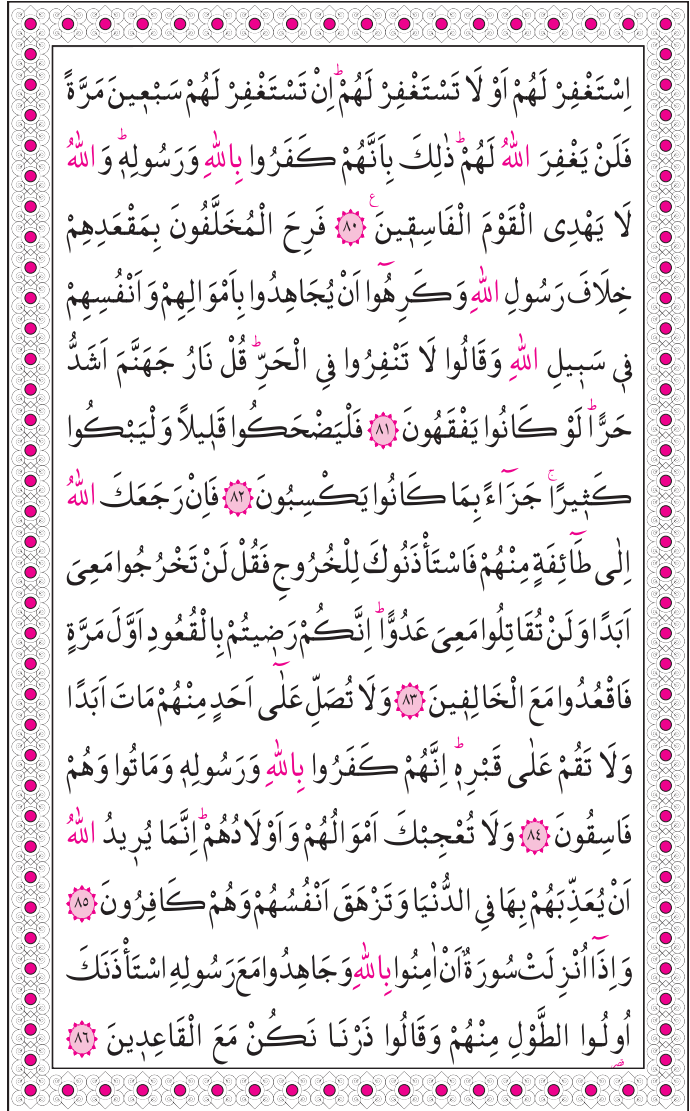 اِسْتَغْفِرْ لَهُمْ اَوْ لَا تَسْتَغْفِرْ لَهُمْۜ اِنْ تَسْتَغْفِرْ لَهُمْ سَبْعٖينَ مَرَّةً
فَلَنْ يَغْفِرَ اللّٰهُ لَهُمْۜ ذٰلِكَ بِاَنَّهُمْ كَفَرُوا بِاللّٰهِ وَرَسُولِهٖۜ وَاللّٰهُ
لَا يَهْدِى الْقَوْمَ الْفَاسِقٖينَࣖ ﴿٨٠﴾ فَرِحَ الْمُخَلَّفُونَ بِمَقْعَدِهِمْ
خِلَافَ رَسُولِ اللّٰهِ وَكَرِهُٓوا اَنْ يُجَاهِدُوا بِاَمْوَالِهِمْ وَاَنْفُسِهِمْ
فٖى سَبٖيلِ اللّٰهِ وَقَالُوا لَا تَنْفِرُوا فِى الْحَرِّۜ قُلْ نَارُ جَهَنَّمَ اَشَدُّ
حَرًّاۜ لَوْ كَانُوا يَفْقَهُونَ ﴿٨١﴾ فَلْيَضْحَكُوا قَلٖيلاً وَلْيَبْكُوا
كَثٖيرًاۚ جَزَٓاءً بِمَا كَانُوا يَكْسِبُونَ ﴿٨٢﴾ فَاِنْ رَجَعَكَ اللّٰهُ
اِلٰى طَٓائِفَةٍ مِنْهُمْ فَاسْتَأْذَنُوكَ لِلْخُرُوجِ فَقُلْ لَنْ تَخْرُجُوا مَعِىَ
اَبَدًا وَلَنْ تُقَاتِلُوا مَعِىَ عَدُوًّاۜ اِنَّكُمْ رَضٖيتُمْ بِالْقُعُودِ اَوَّلَ مَرَّةٍ
فَاقْعُدُوا مَعَ الْخَالِفٖينَ ﴿٨٣﴾ وَلَا تُصَلِّ عَلٰٓى اَحَدٍ مِنْهُمْ مَاتَ اَبَدًا
وَلَا تَقُمْ عَلٰى قَبْرِهٖۜ اِنَّهُمْ كَفَرُوا بِاللّٰهِ وَرَسُولِهٖ وَمَاتُوا وَهُمْ
فَاسِقُونَ ﴿٨٤﴾ وَلَا تُعْجِبْكَ اَمْوَالُهُمْ وَاَوْلَادُهُمْۜ اِنَّمَا يُرٖيدُ اللّٰهُ
اَنْ يُعَذِّبَهُمْ بِهَا فِى الدُّنْيَا وَتَزْهَقَ اَنْفُسُهُمْ وَهُمْ كَافِرُونَ ﴿٨٥﴾
وَاِذَٓا اُنْزِلَتْ سُورَةٌ اَنْ اٰمِنُوا بِاللّٰهِ وَجَاهِدُوا مَعَ رَسُولِهِ اسْتَأْذَنَكَ
اُولُوا الطَّوْلِ مِنْهُمْ وَقَالُوا ذَرْنَا نَكُنْ مَعَ الْقَاعِدٖينَ ﴿٨٦﴾